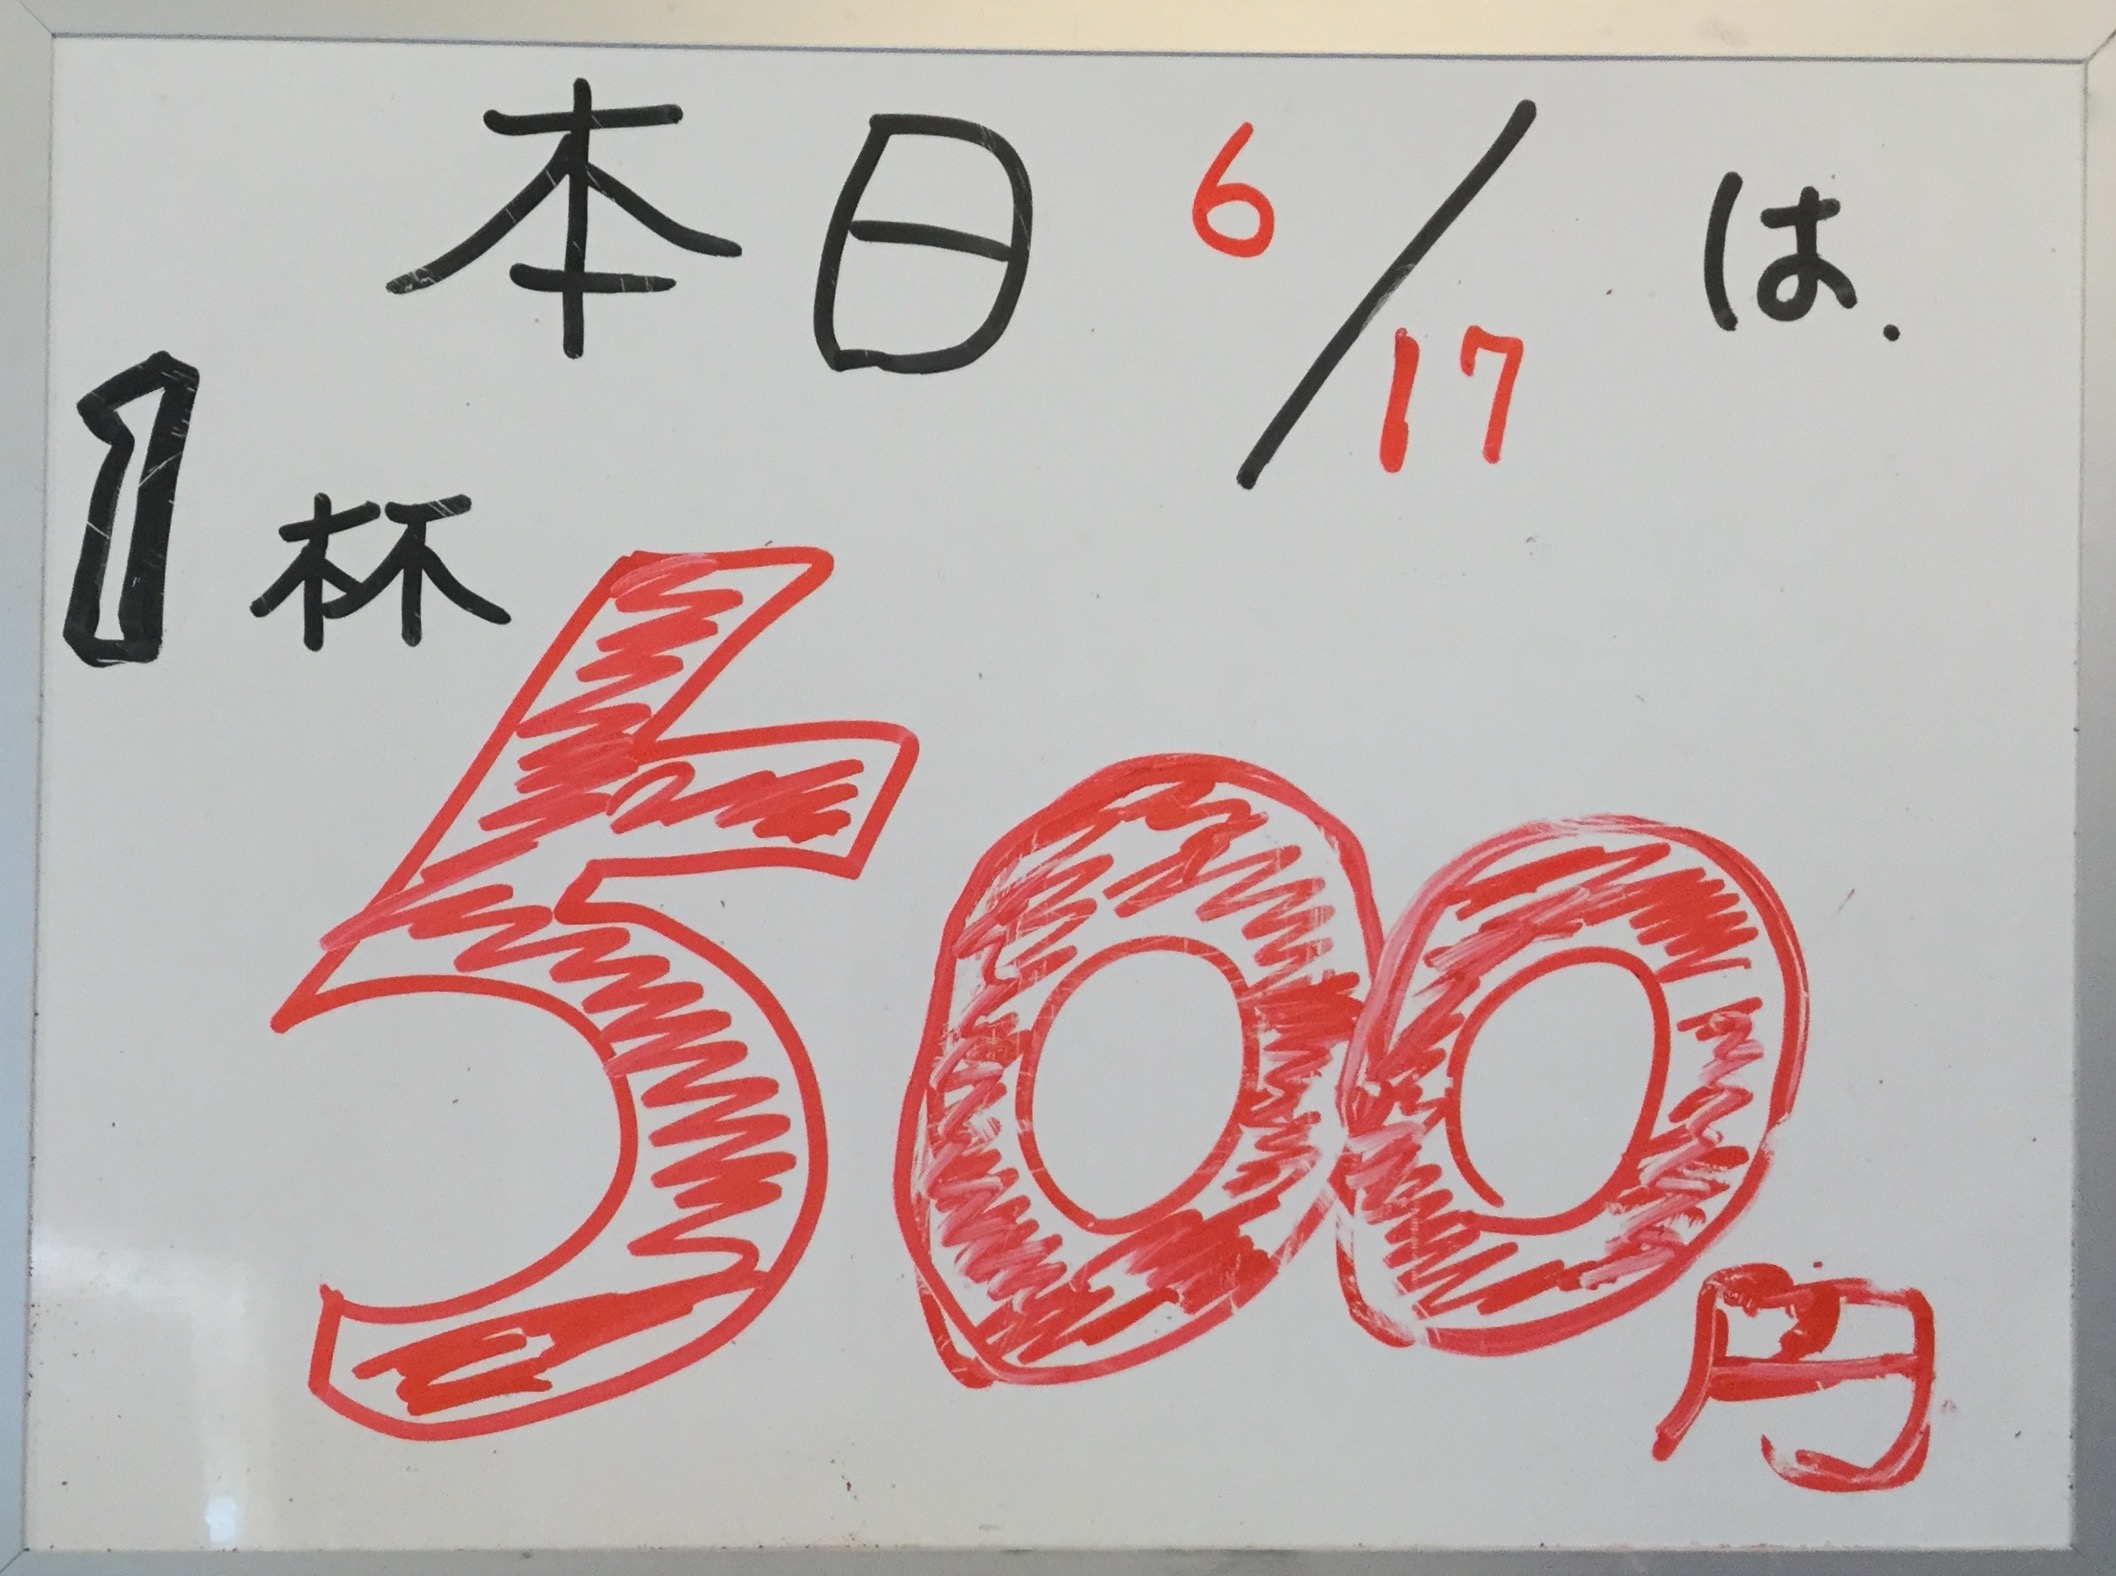 本日 6/17 は.
1杯
500円